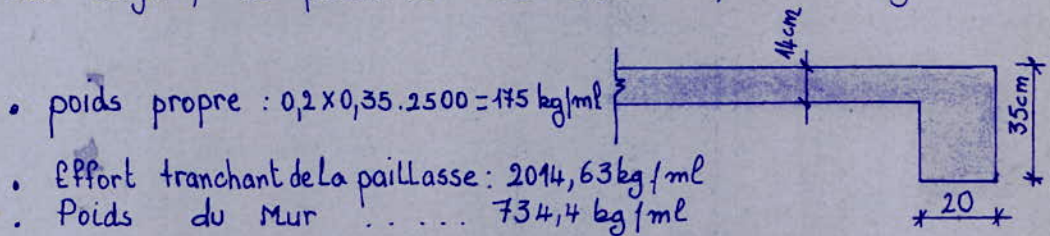 14cm
• poids propre : 0,2 x 0,35 . 2500 = 175 kg/ml
35cm
• Effort tranchant de La paillasse : 2014,63 kg/ml
. Poids du Mur ..... 734,4 kg/ml
20